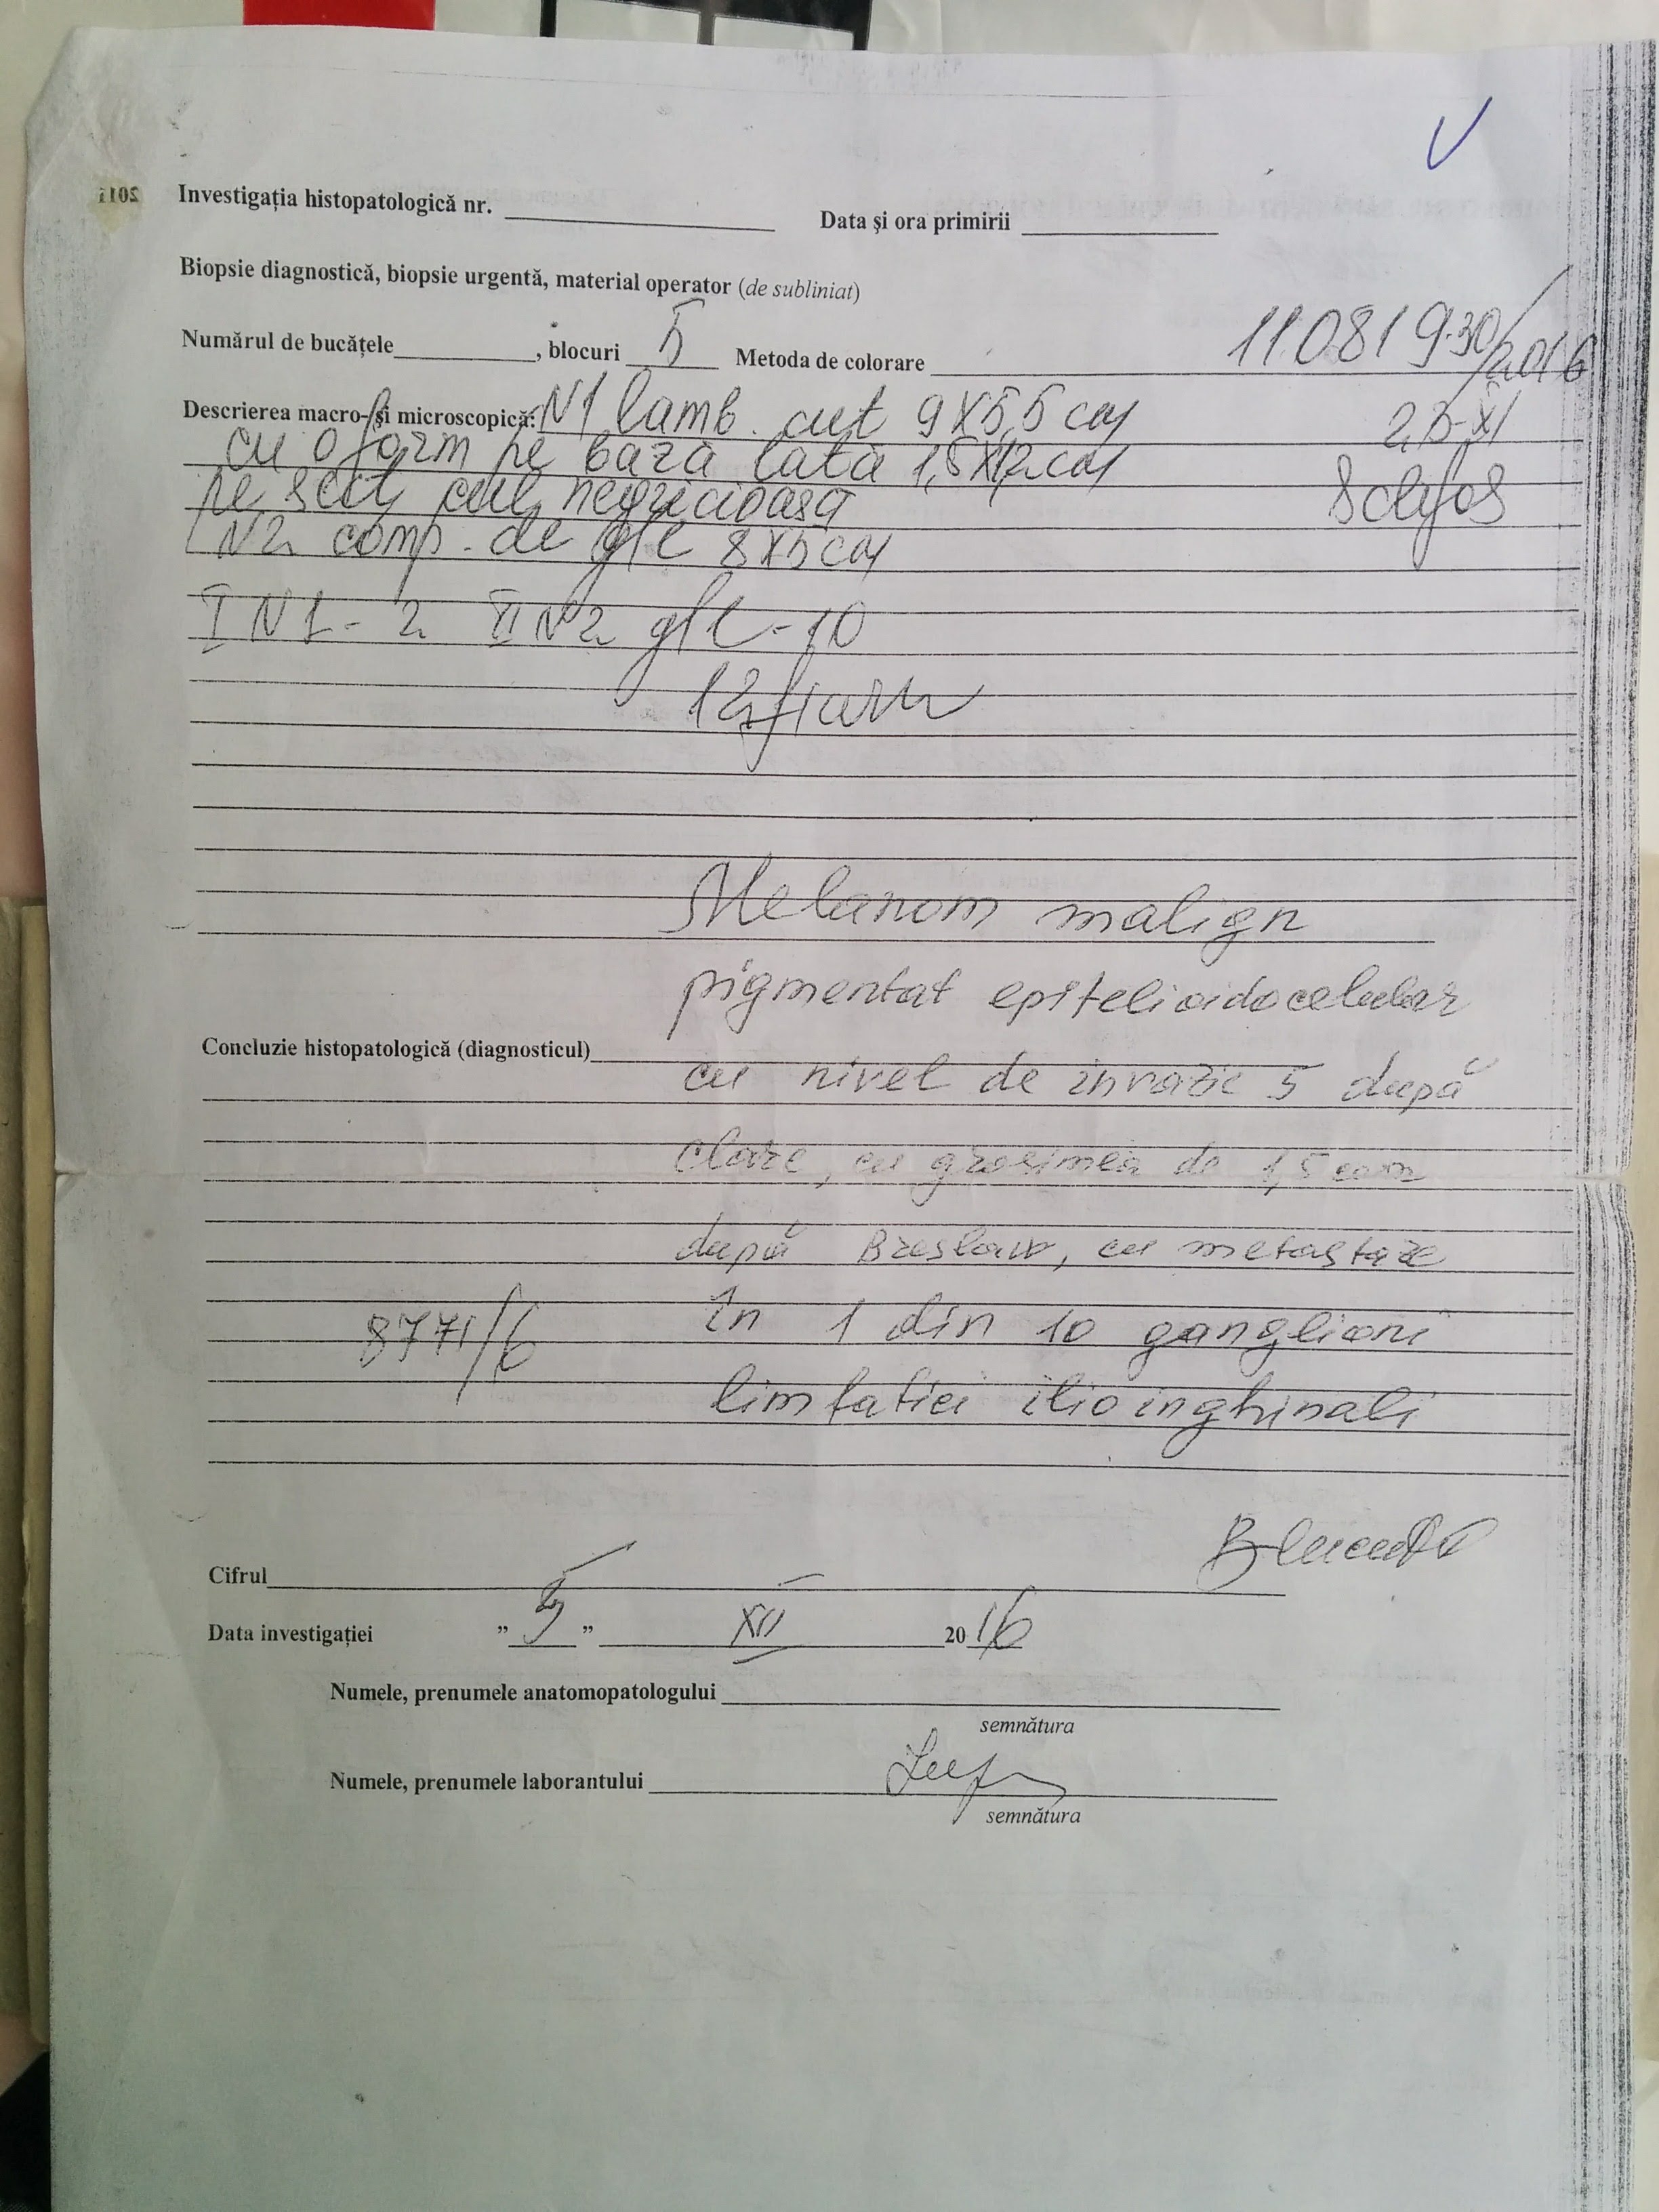 Investigația histopatologică nr.
Data şi ora primirii
Biopsie diagnostică, biopsie urgentă, material operator (de subliniat)
Numărul de bucățele , blocuri 5 Metoda de colorare
110819-30/2016
Descrierea macro- şi microscopică: N1 lamb. cut 9x5,5 cm
25-XI
cu o form pe baza lată 1,5x1,2 cm
pe secț cul negricioasa
N2 comp. de gll 8x5 cm
I N1 - 2 II N2 gll - 10
Melanom malign
pigmentat epitelioidocelular
Concluzie histopatologică (diagnosticul)
cu nivel de invazie 5 după
Clarc, cu grosimea de 1,5 cm
după Breslow, cu metastaze
8771/6
în 1 din 10 ganglioni
limfatici ilioinghinali
Cifrul
Data investigației " 5 " XII 2016
Numele, prenumele anatomopatologului
semnătura
Numele, prenumele laborantului
semnătura